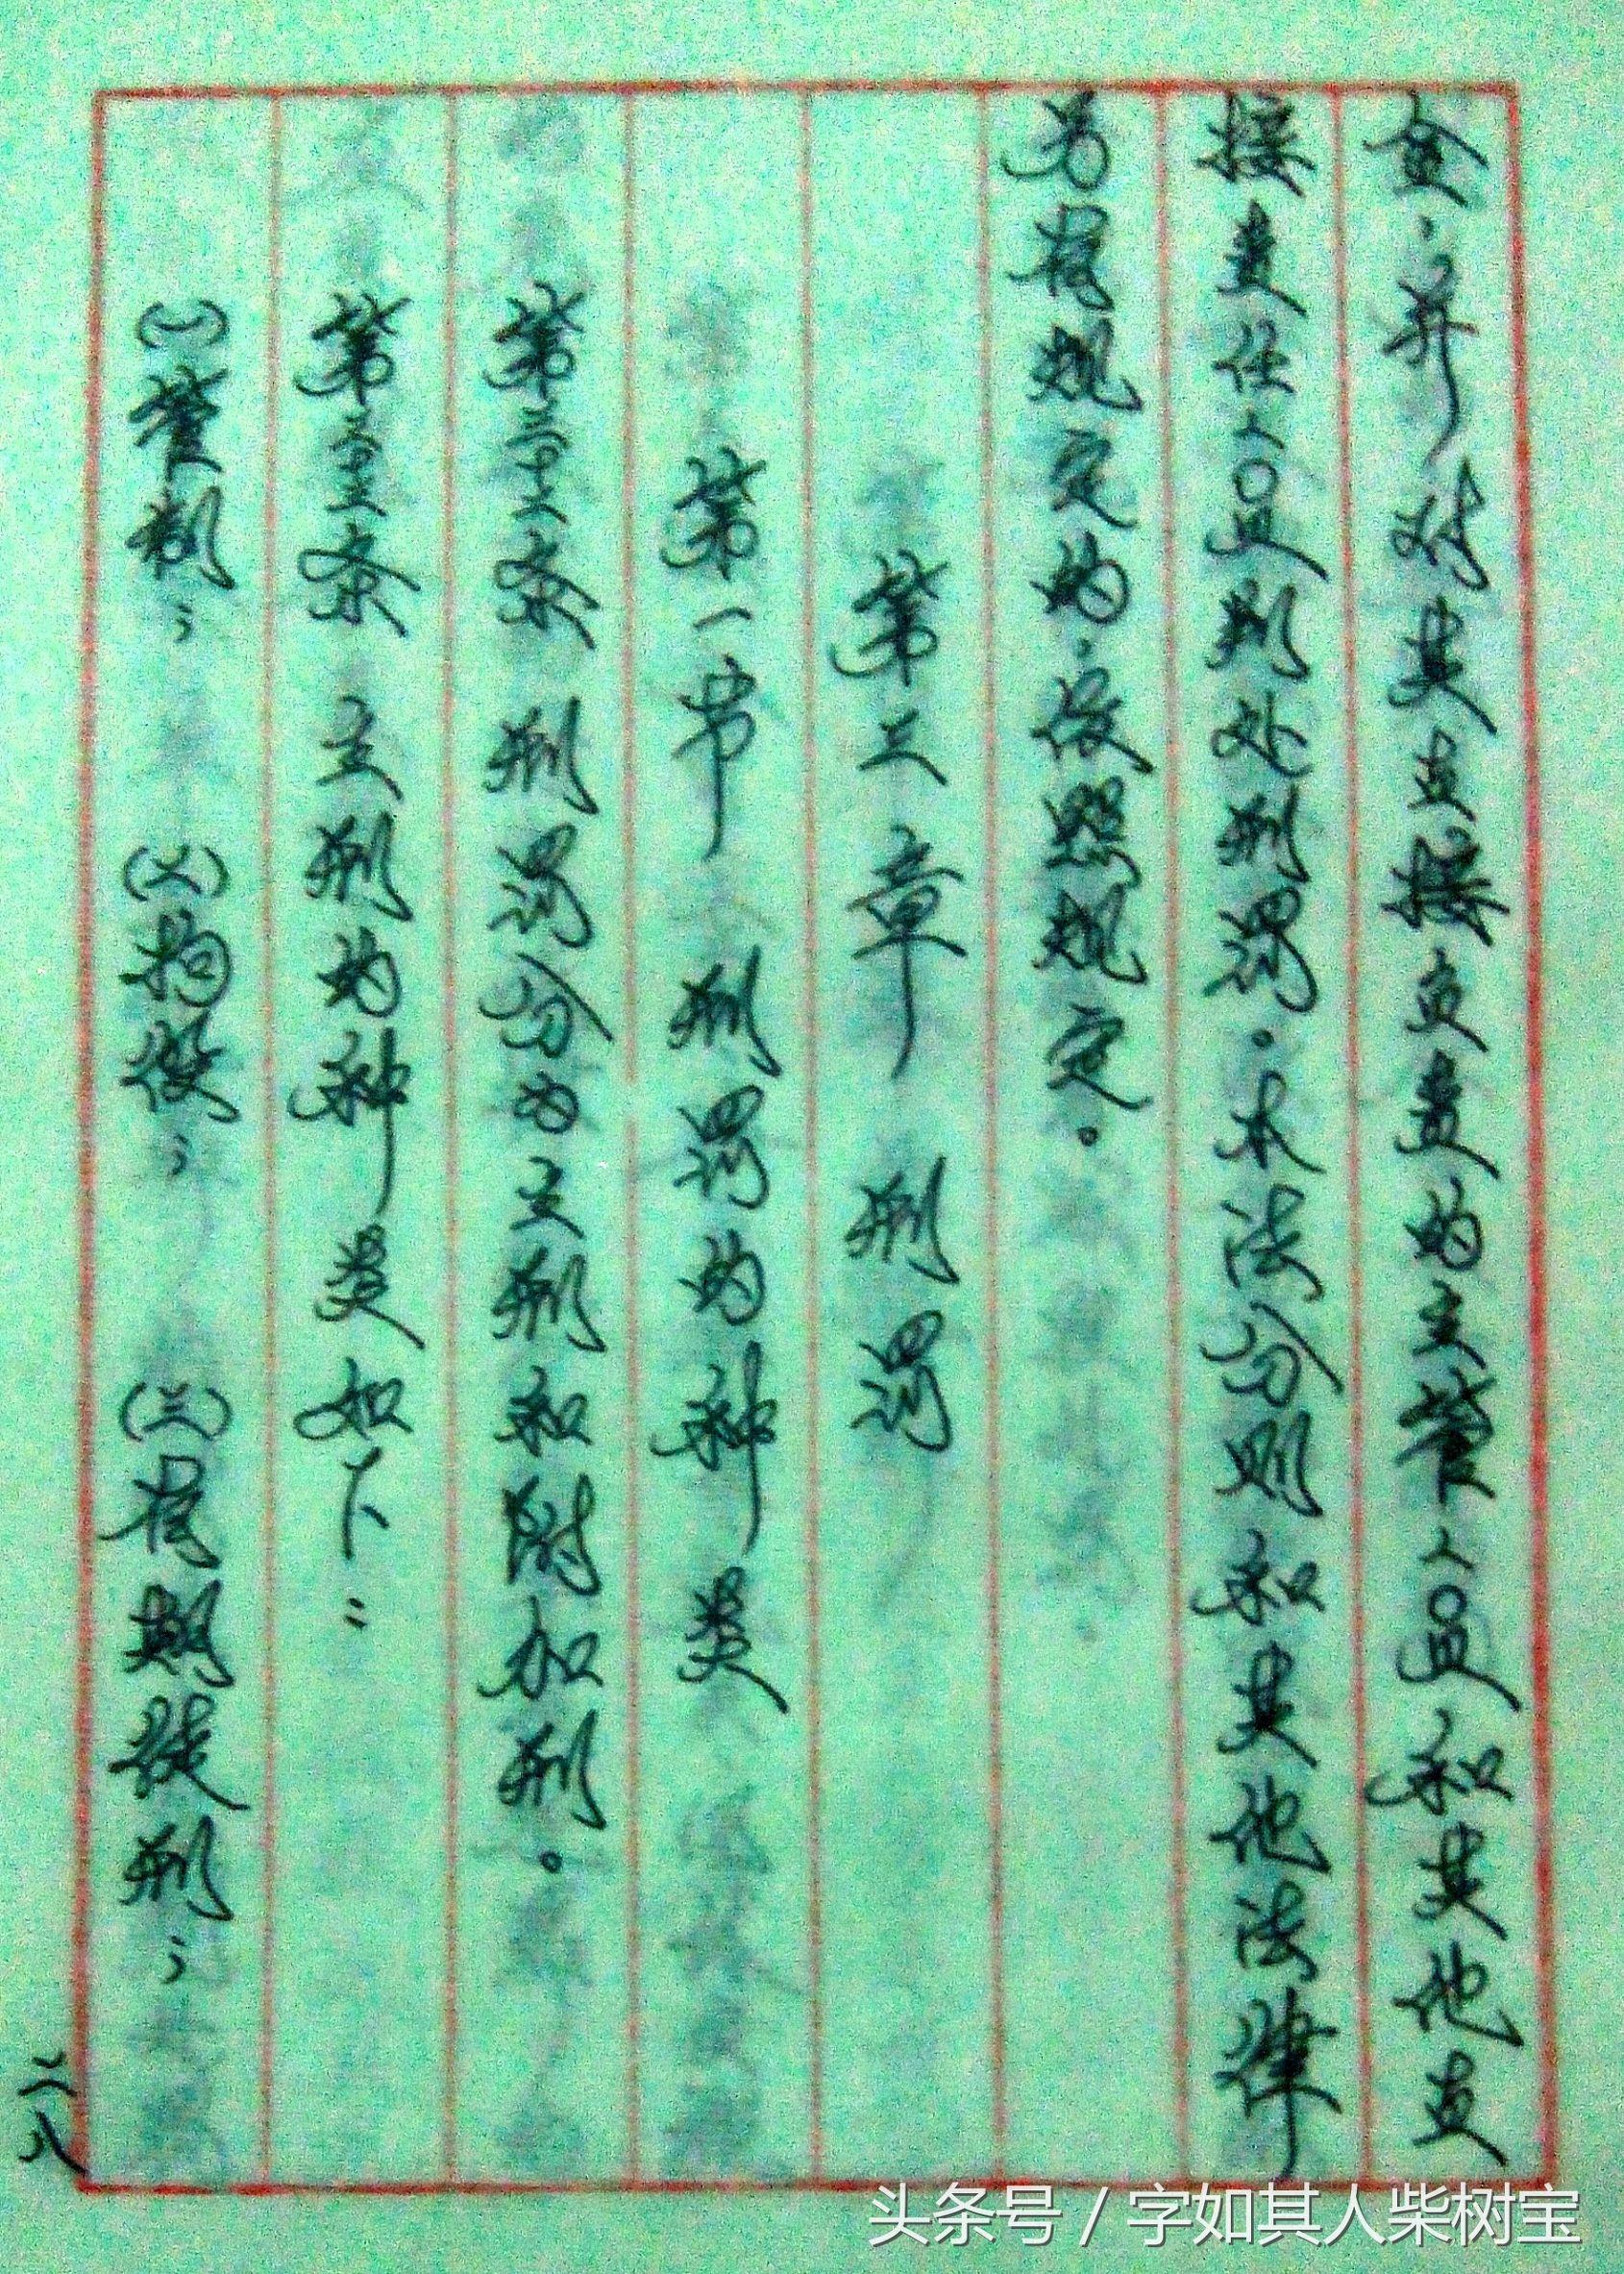 金，并对其直接负责的主管人员和其他直
接责任人员判处刑罚。本法分则和其他法律
另有规定的，依照规定。
第三章 刑罚
第一节 刑罚的种类
第三十二条 刑罚分为主刑和附加刑。
第三十三条 主刑的种类如下：
（一）管制； （二）拘役； （三）有期徒刑；
二八
头条号 / 字如其人柴树宝